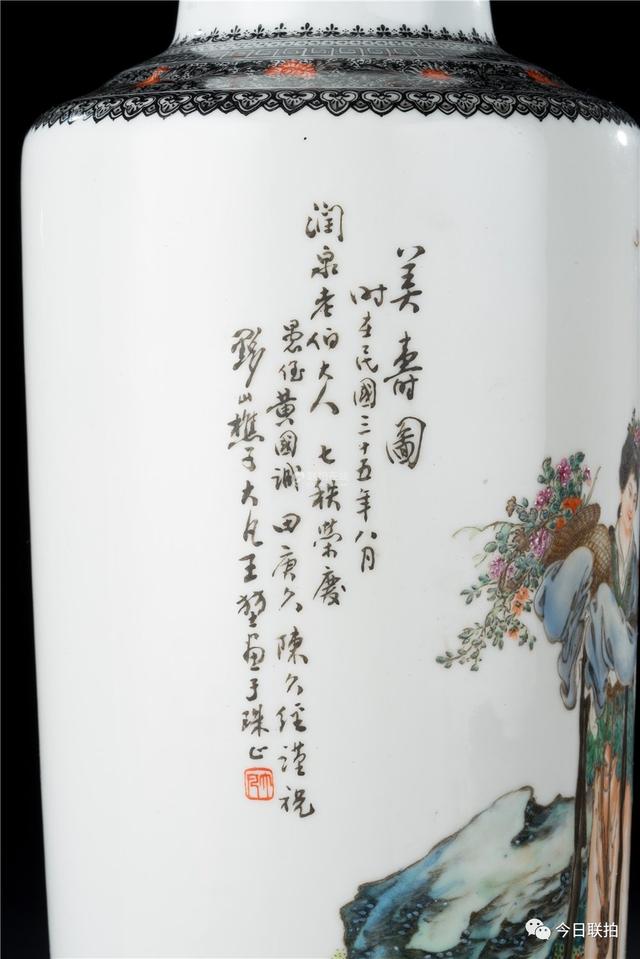 美壽圖
时在民國三十五年八月
潤泉老伯大人 七秩榮慶
愚侄黄國 田庚久 陳久經謹祝
黟山樵子大凡王堃画于珠山
今日联拍